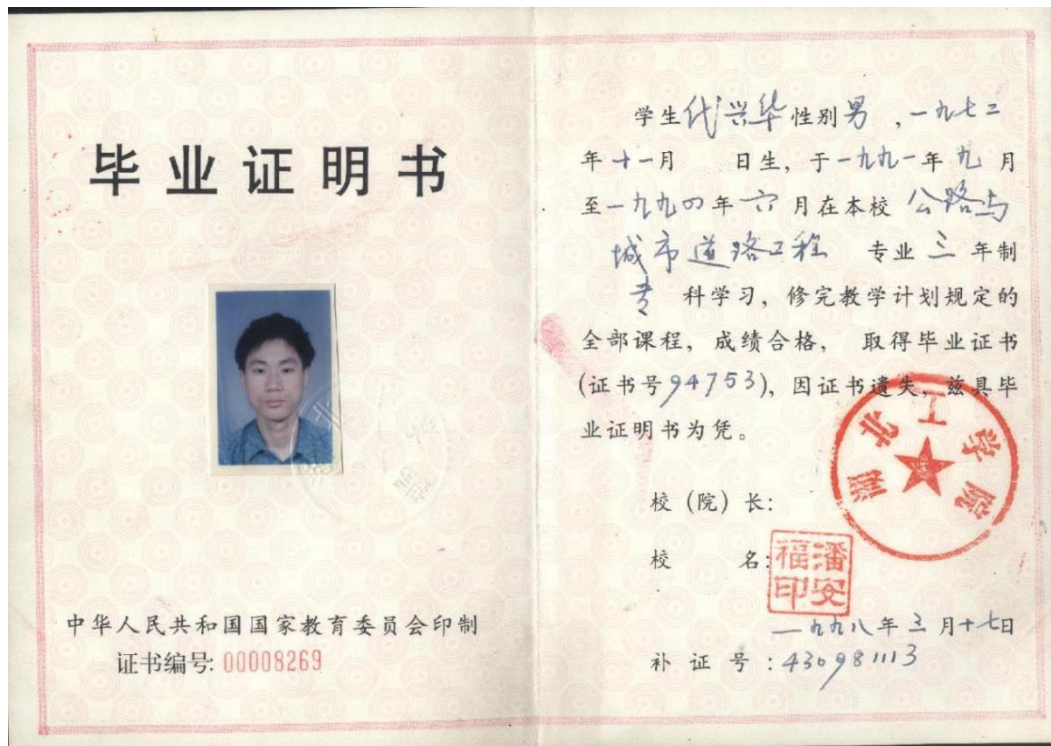 毕业证明书
中华人民共和国国家教育委员会印制
证书编号: 00008269
学生代兴华性别男,一九七二
年十一月 日生,于一九九一年九月
至一九九四年六月在本校公路与
城市道路工程 专业三年制
专 科学习,修完教学计划规定的
全部课程,成绩合格, 取得毕业证书
(证书号94753),因证书遗失,兹具毕
业证明书为凭。
湖北工学院
校(院)长:
校 名:
潘安
福印
一九九八年三月十七日
补 证 号:430981113